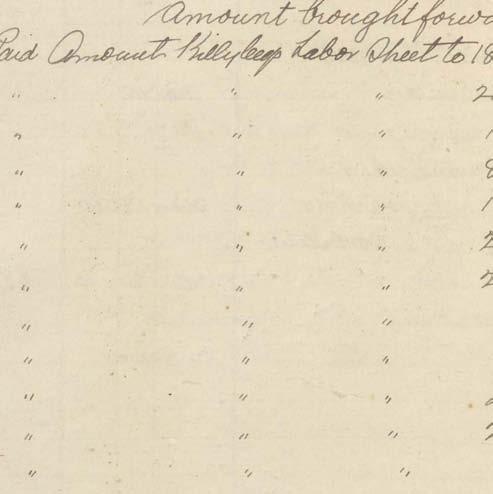 Amount brought forwa
Paid Amount Killybegs Labor Sheet to 18
" " " 2
" " " 1
" " " 8
" " " 1
" " " 2
" " " 2
" " "
" " "
" " "
" " " 2
" " "